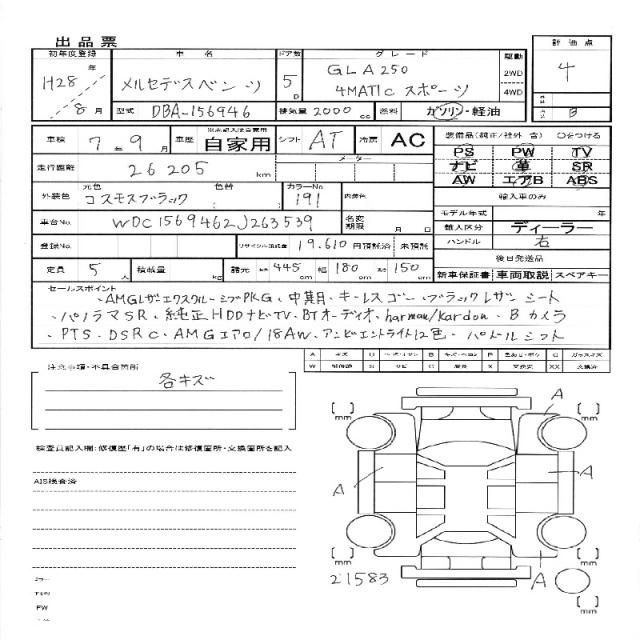 出品票
初年度登録 車名 ドア数 グレード 駆動 評価点
H28年 メルセデスベンツ 5D GLA250 2WD 4
8月 4MATIC スポーツ 4WD
型式 DBA-156946 排気量 2000cc 燃料 ガソリン・軽油 B
車検 7年9月 車歴 自家用 シフト AT 冷房 AC 装備品(純正/社外 含) ○をつける
走行距離 26205km メーター PS PW TV
ナビ 革 SR
AW エアB ABS
外装色 元色 コスモスブラック 色替 カラーNo 191 内装色 輸入車のみ
車台No. WDC1569462J263539 名変期限 月 日 モデル年式 年
輸入区分 ディーラー
登録No. リサイクル預託金 19,610円預託済 未預託 ハンドル 右
定員 5人 積載量 kg 諸元 長 445cm 幅 180cm 高 150cm 後日発送品
新車保証書 車両取説 スペアキー
セールスポイント
・AMGレザーエクスクルーシブPKG・中期目・キーレスゴー・ブラックレザーシート
・パノラマSR・純正HDDナビTV・BTオーディオ・harman/kardon・Bカメラ
・PTS・DSRC・AMGエアロ/18AW・アンビエントライト12色・パドルシフト
注意事項・不具合箇所
各キズ
検査員記入欄:修復歴「有」の場合は修復箇所・交換箇所を記入
AIS検査済
mm mm
A
A A
mm mm
21583 A
mm